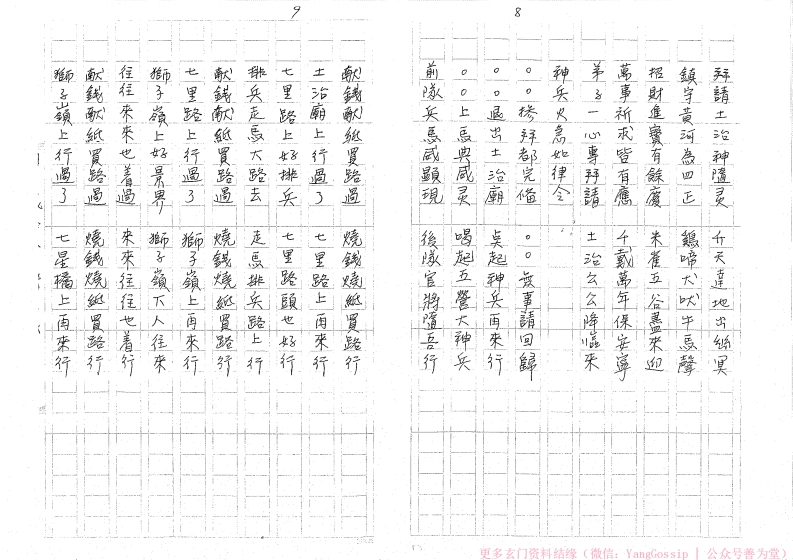 8
拜請土治神隨灵　千天達地出幽冥
鎮守黃河為四正　鷄啼犬吠牛馬聲
招財進寶有餘慶　朱雀五谷盡來迎
萬事祈求皆有應　千戴萬年保安寧
弟子一心專拜請　土治公公降臨來
神兵火急如律令
○○○拶拜都完俻　○○無事請回歸
○○退出土治廟　吳起神兵再來行
○○上馬典咸灵　喝起五營大神兵
前隊兵馬咸顯現　後隊官將隨吾行
9
献錢献紙買路過　燒錢燒紙買路行
土治廟上行過了　七里路上再來行
七里路上好排兵　七里路頭也好行
排兵走馬大路去　走馬排兵路上行
献錢献紙買路過　燒錢燒紙買路行
七里路上行過了　獅子嶺上再來行
獅子嶺上好景界　獅子嶺下人往來
往往來來也着過　來來往往也着行
献錢献紙買路過　燒錢燒紙買路行
獅子嶺上行過了　七星橋上再來行
更多玄门资料结缘（微信：YangGossip | 公众号善为堂）